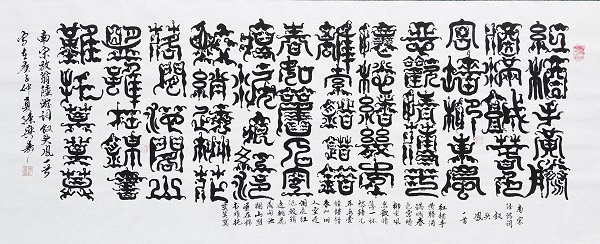 紅酥手黃縢
酒滿城春色
宮墻柳東風
惡歡情薄一
懷愁緒幾年
離索錯錯錯
春如舊人空
瘦淚痕紅浥
鮫綃透桃花
落閒池閣山
盟雖在錦書
難託莫莫莫
南宋放翁陸游詞釵头鳳一首
南宋
陸游詞
釵头
鳳
一首
紅酥手
黃縢酒
滿城春
色宮墻
柳東風
惡歡情
薄一杯
愁緒几
年離索
錯錯錯
春如旧
人空瘦
淚痕紅
浥鮫綃
透桃花
落閒池
閣山盟
雖在錦
書難托
莫莫莫